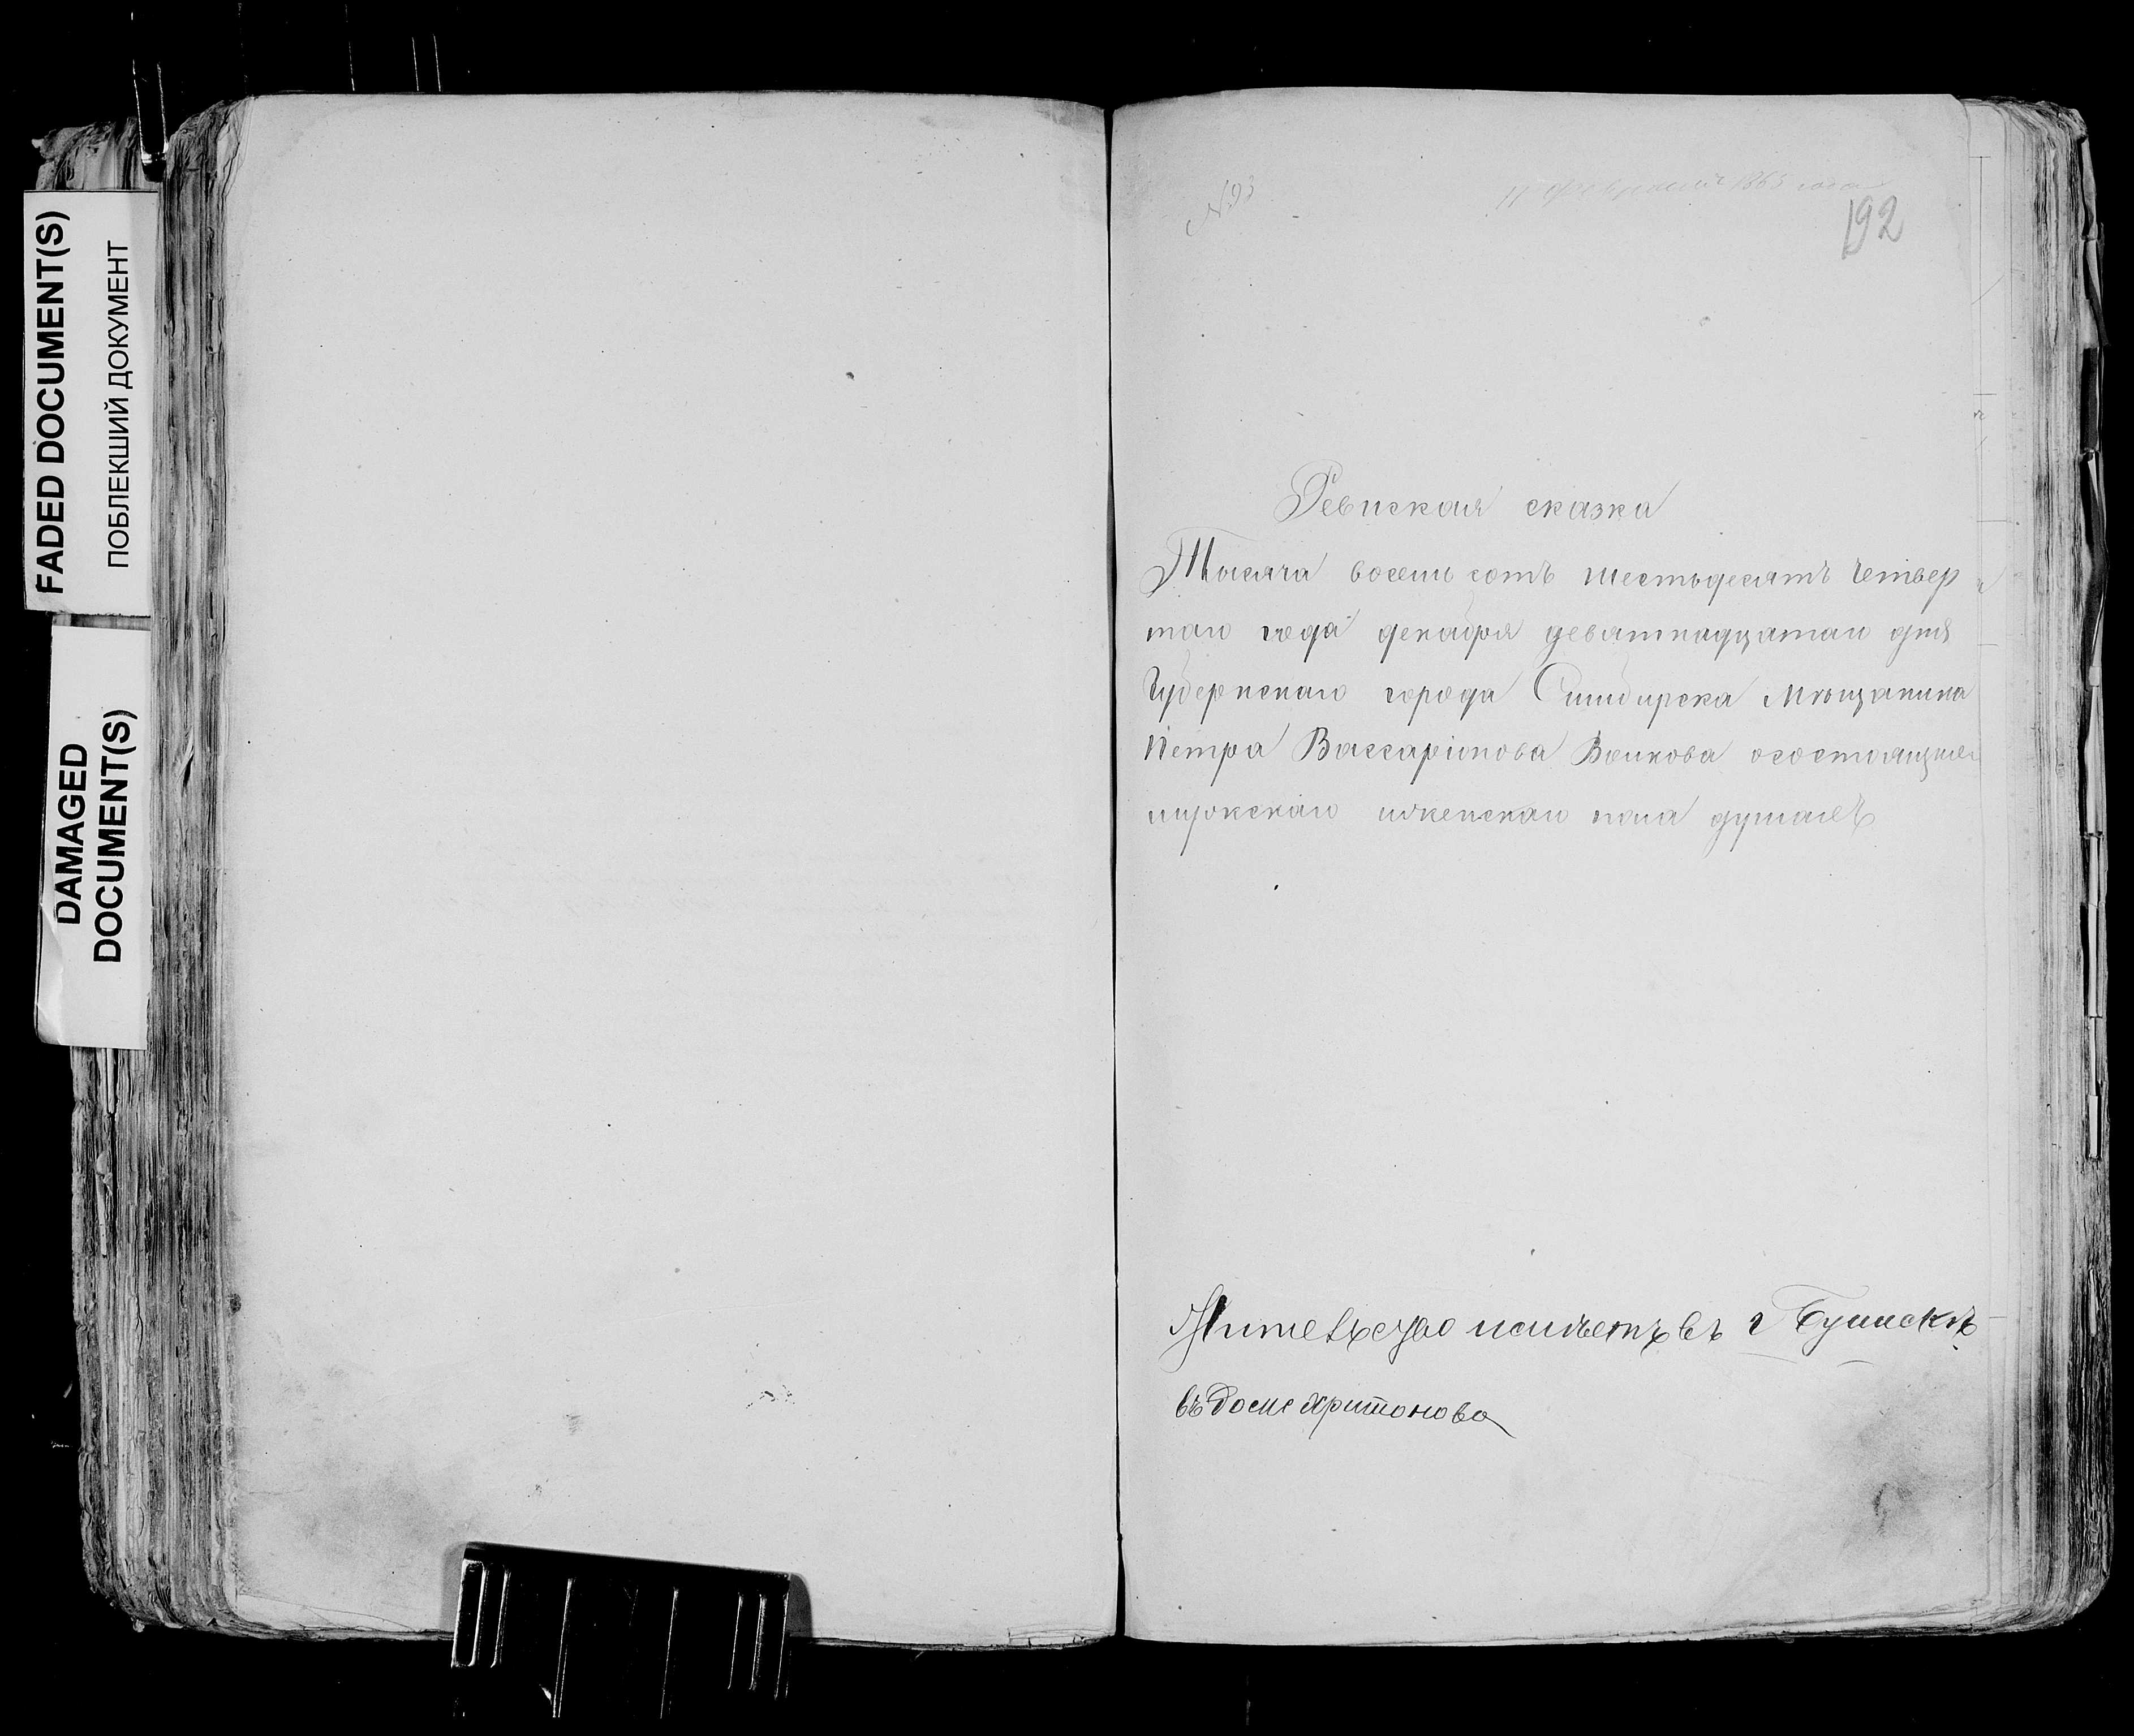 FADED DOCUMENT(S)
ПОБЛЕКШИЙ ДОКУМЕНТ
DAMAGED
DOCUMENT(S)
№ 93
11 февраля 1865 года
192
Ревиская сказка
Тысяча восемь сотъ шестьдесятъ четвер
таго года декабря девятнадцатаго дня
Губернскаго города Симбирска Мѣщанина
Петра Вассаріонова Волкова осостоящихъ
мужскаго иженскаго пола душахъ
Жительство имѣетъ въ г Буинскѣ
въ доме Хритонова